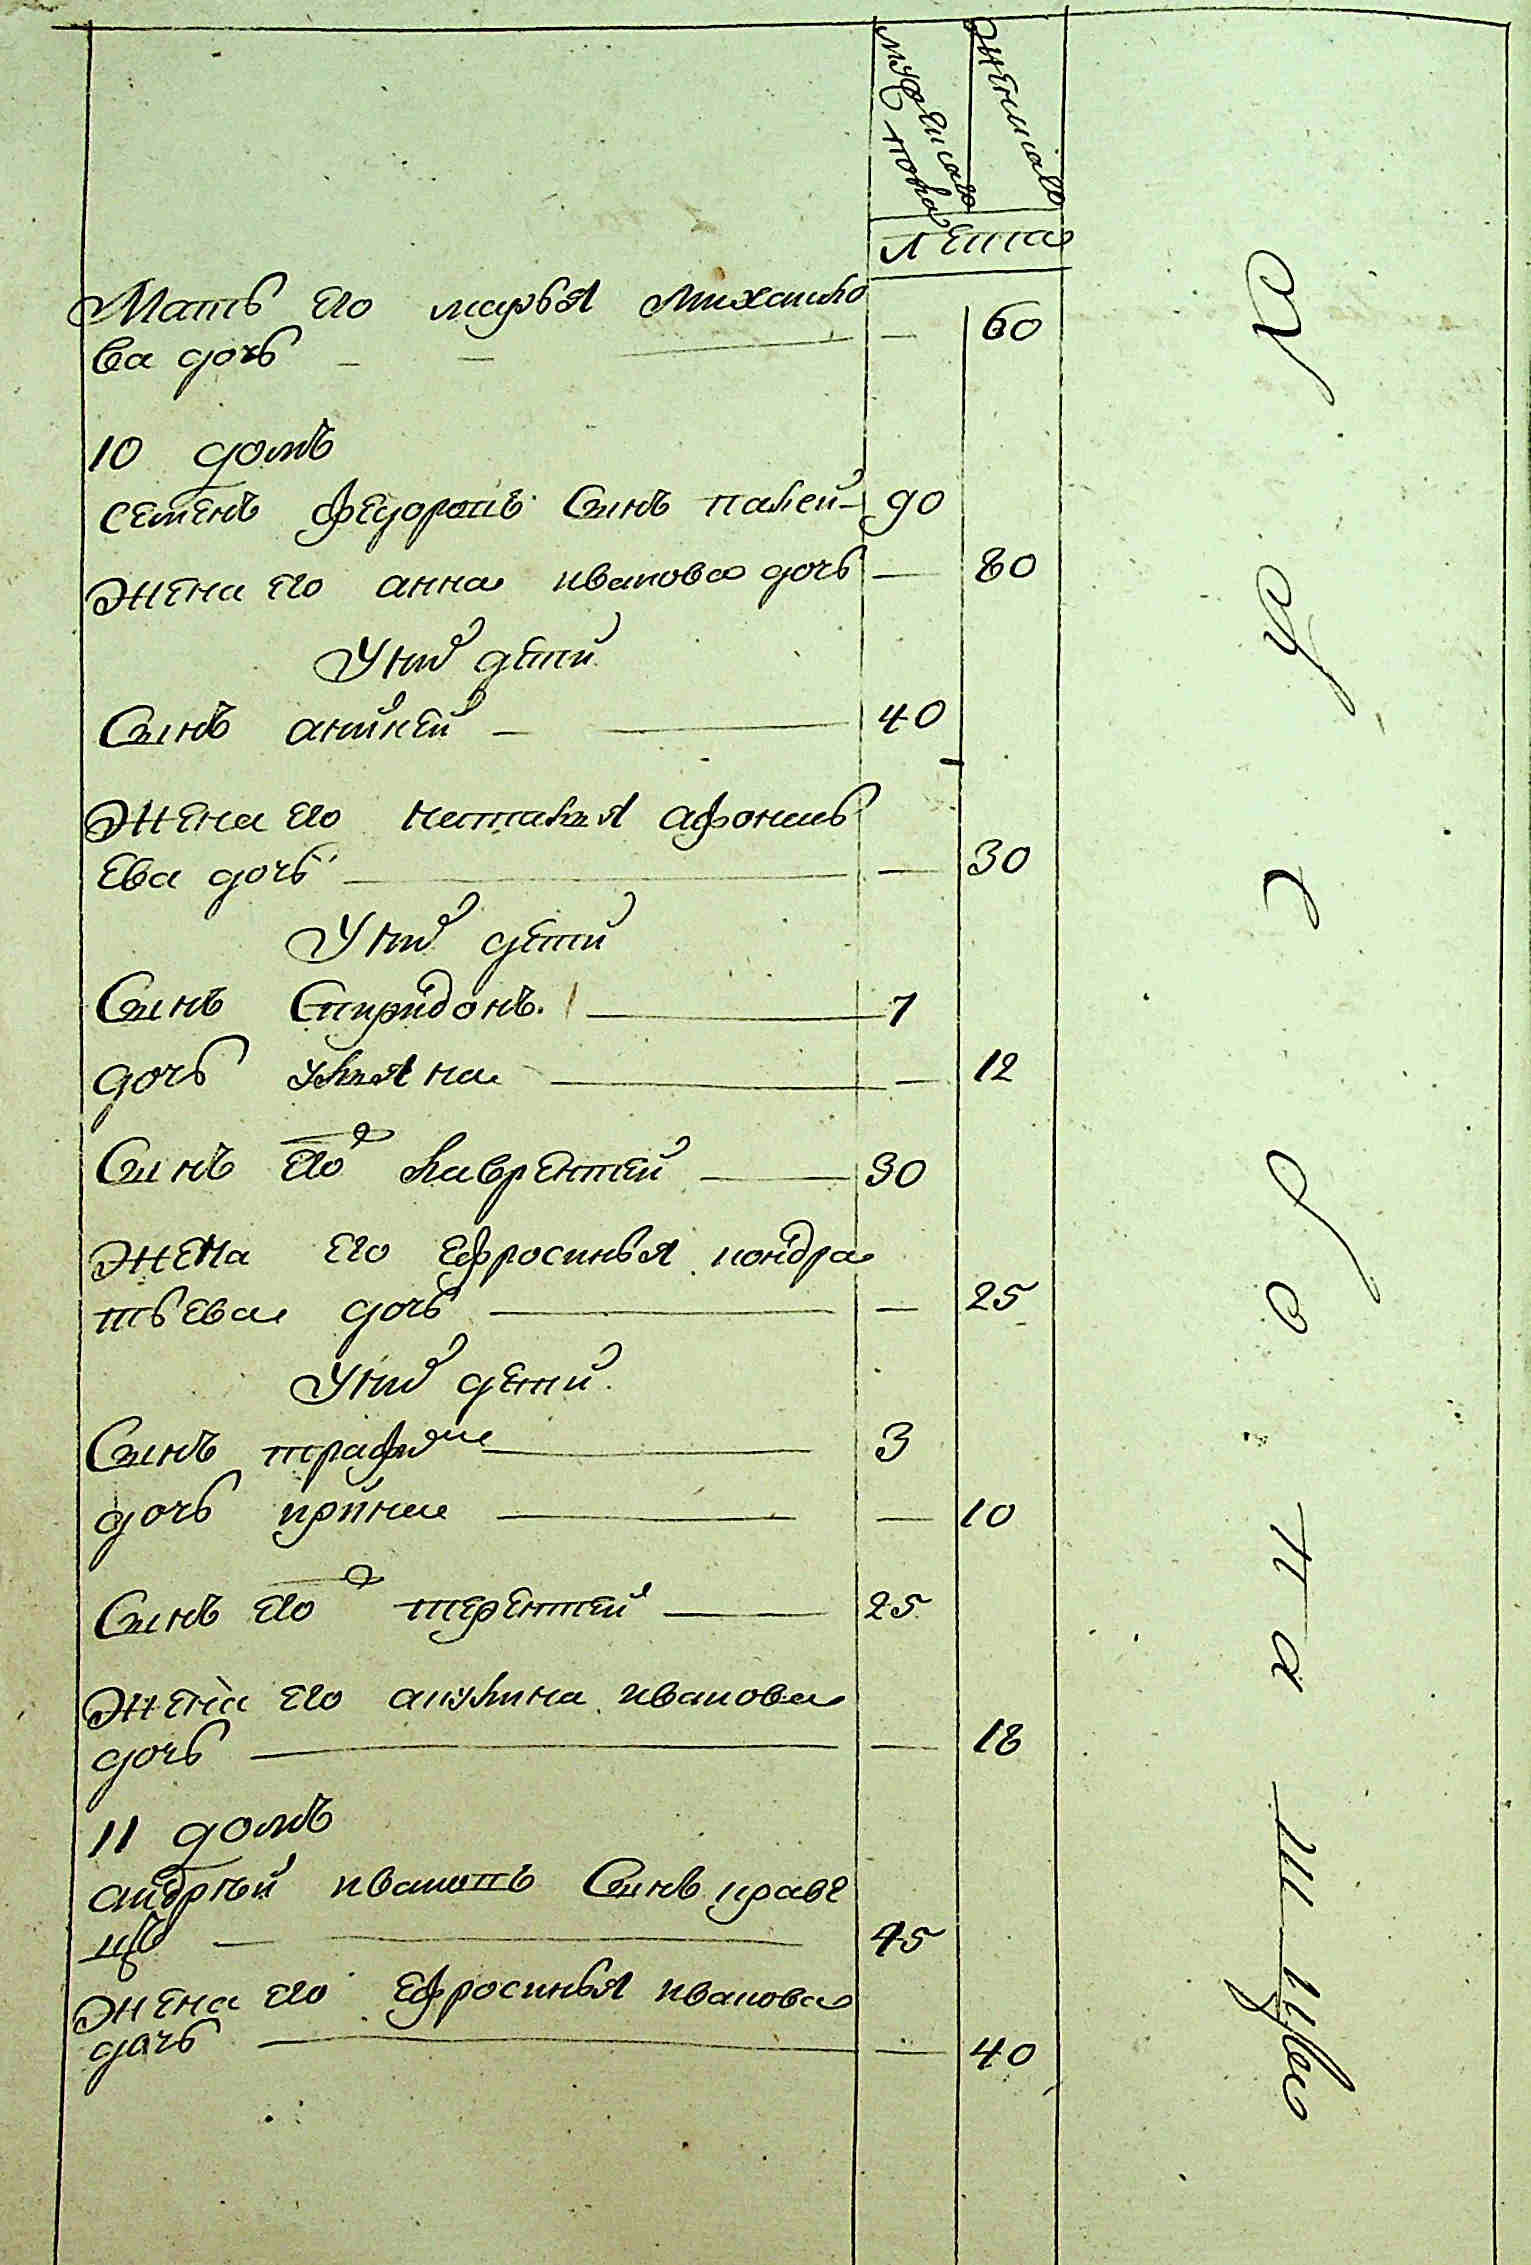 мужеска
женскаго
пола
лета
Мать его марья михаило
ва дочь 60
10 домъ
семенъ федоровъ сынъ палей 90
жена его анна иванова дочь 80
У них дети
Сынъ аникей 40
жена его наталья афонась
ева дочь 30
У них дети
Сынъ Спиридонъ 7
дочь ульяна 12
Сынъ его лаврентей 30
жена его ефросинья кондра
тьева дочь 25
У них дети
Сынъ трафим 3
дочь ирина 10
Сынъ его терентей 25
жена его акулина иванова
дочь 18
11 домъ
андрей ивановъ Сынъ краве
цъ 45
жена его ефросинья иванова
дочь 40